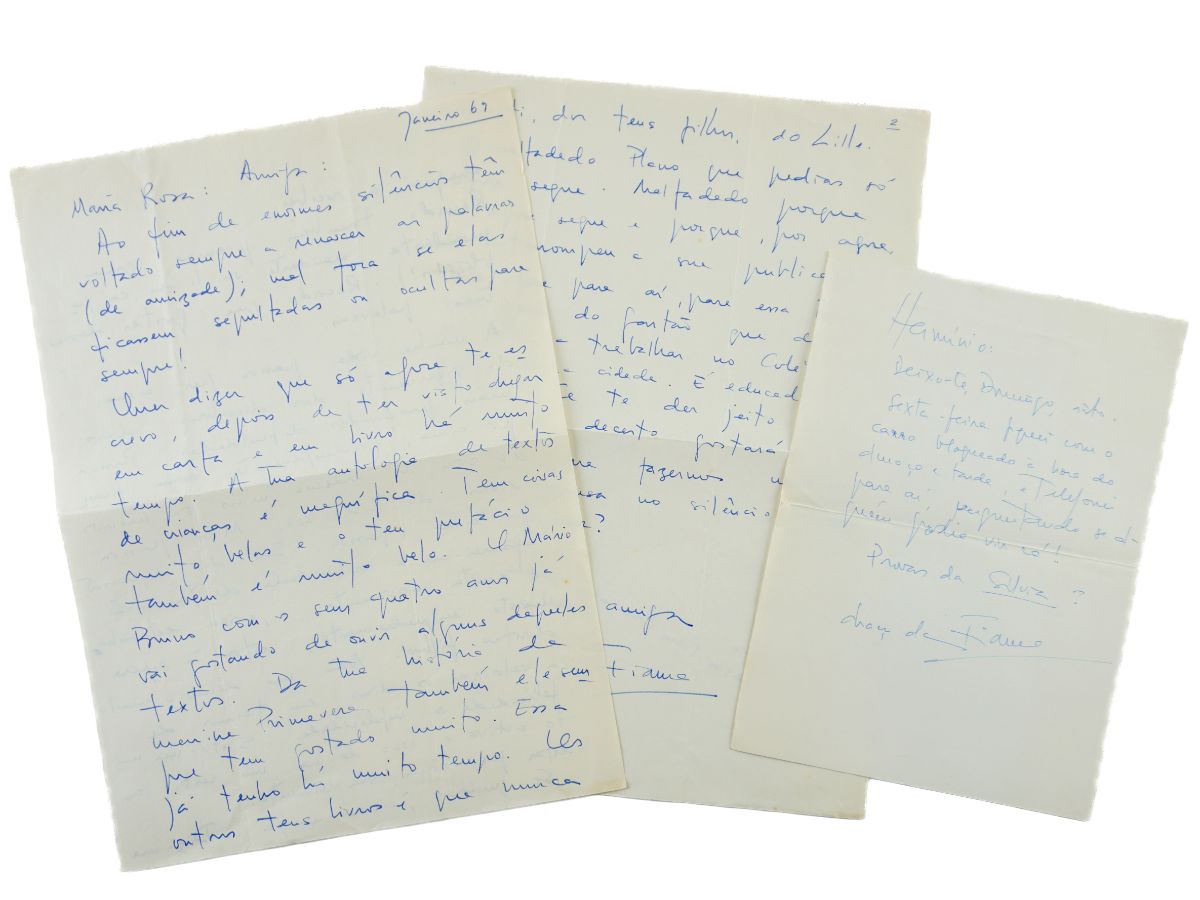 Janeiro 69
Maria Rosa: Amiga:
Ao fim de enormes silêncios têm
voltado sempre a renascer as palavras
(de amizade); mal fora se elas
ficassem sepultadas ou ocultas para
sempre!
Quer dizer que só agora te es
crevo, depois de ter visto chegar
em carta e em livro há muito
tempo. A tua antologia de textos
de crianças é magnífica. Tem coisas
muito belas e o teu prefácio
também é muito belo. O Mário
Bruno com os seus quatro anos já
vai gostando de ouvir alguns daqueles
textos. Da tua história da
menina Primavera também ele sem
pre tem gostado muito. Essa
já tenho há muito tempo. Os
outros teus livros é que nunca
2
di, dos teus filhos, do Lille.
Plano que pedias só
segue. Maltadado porque
segue e porque, por agora,
rompeu a sua publica
para aí, para essa
do Gastão que
trabalhar no Colé
cidade. É educad
te der jeito
decerto gostará
fazermos
no silêncio
?
amiga
Fiama
Hermínio:
Deixo-te, Domingo, isto.
Sexta-feira fiquei com o
carro bloqueado à hora do
almoço e tarde, e telefonei
para aí perguntando se al-
guém podia vir cá!!
Provas da Silvia?
abraço da Fiama